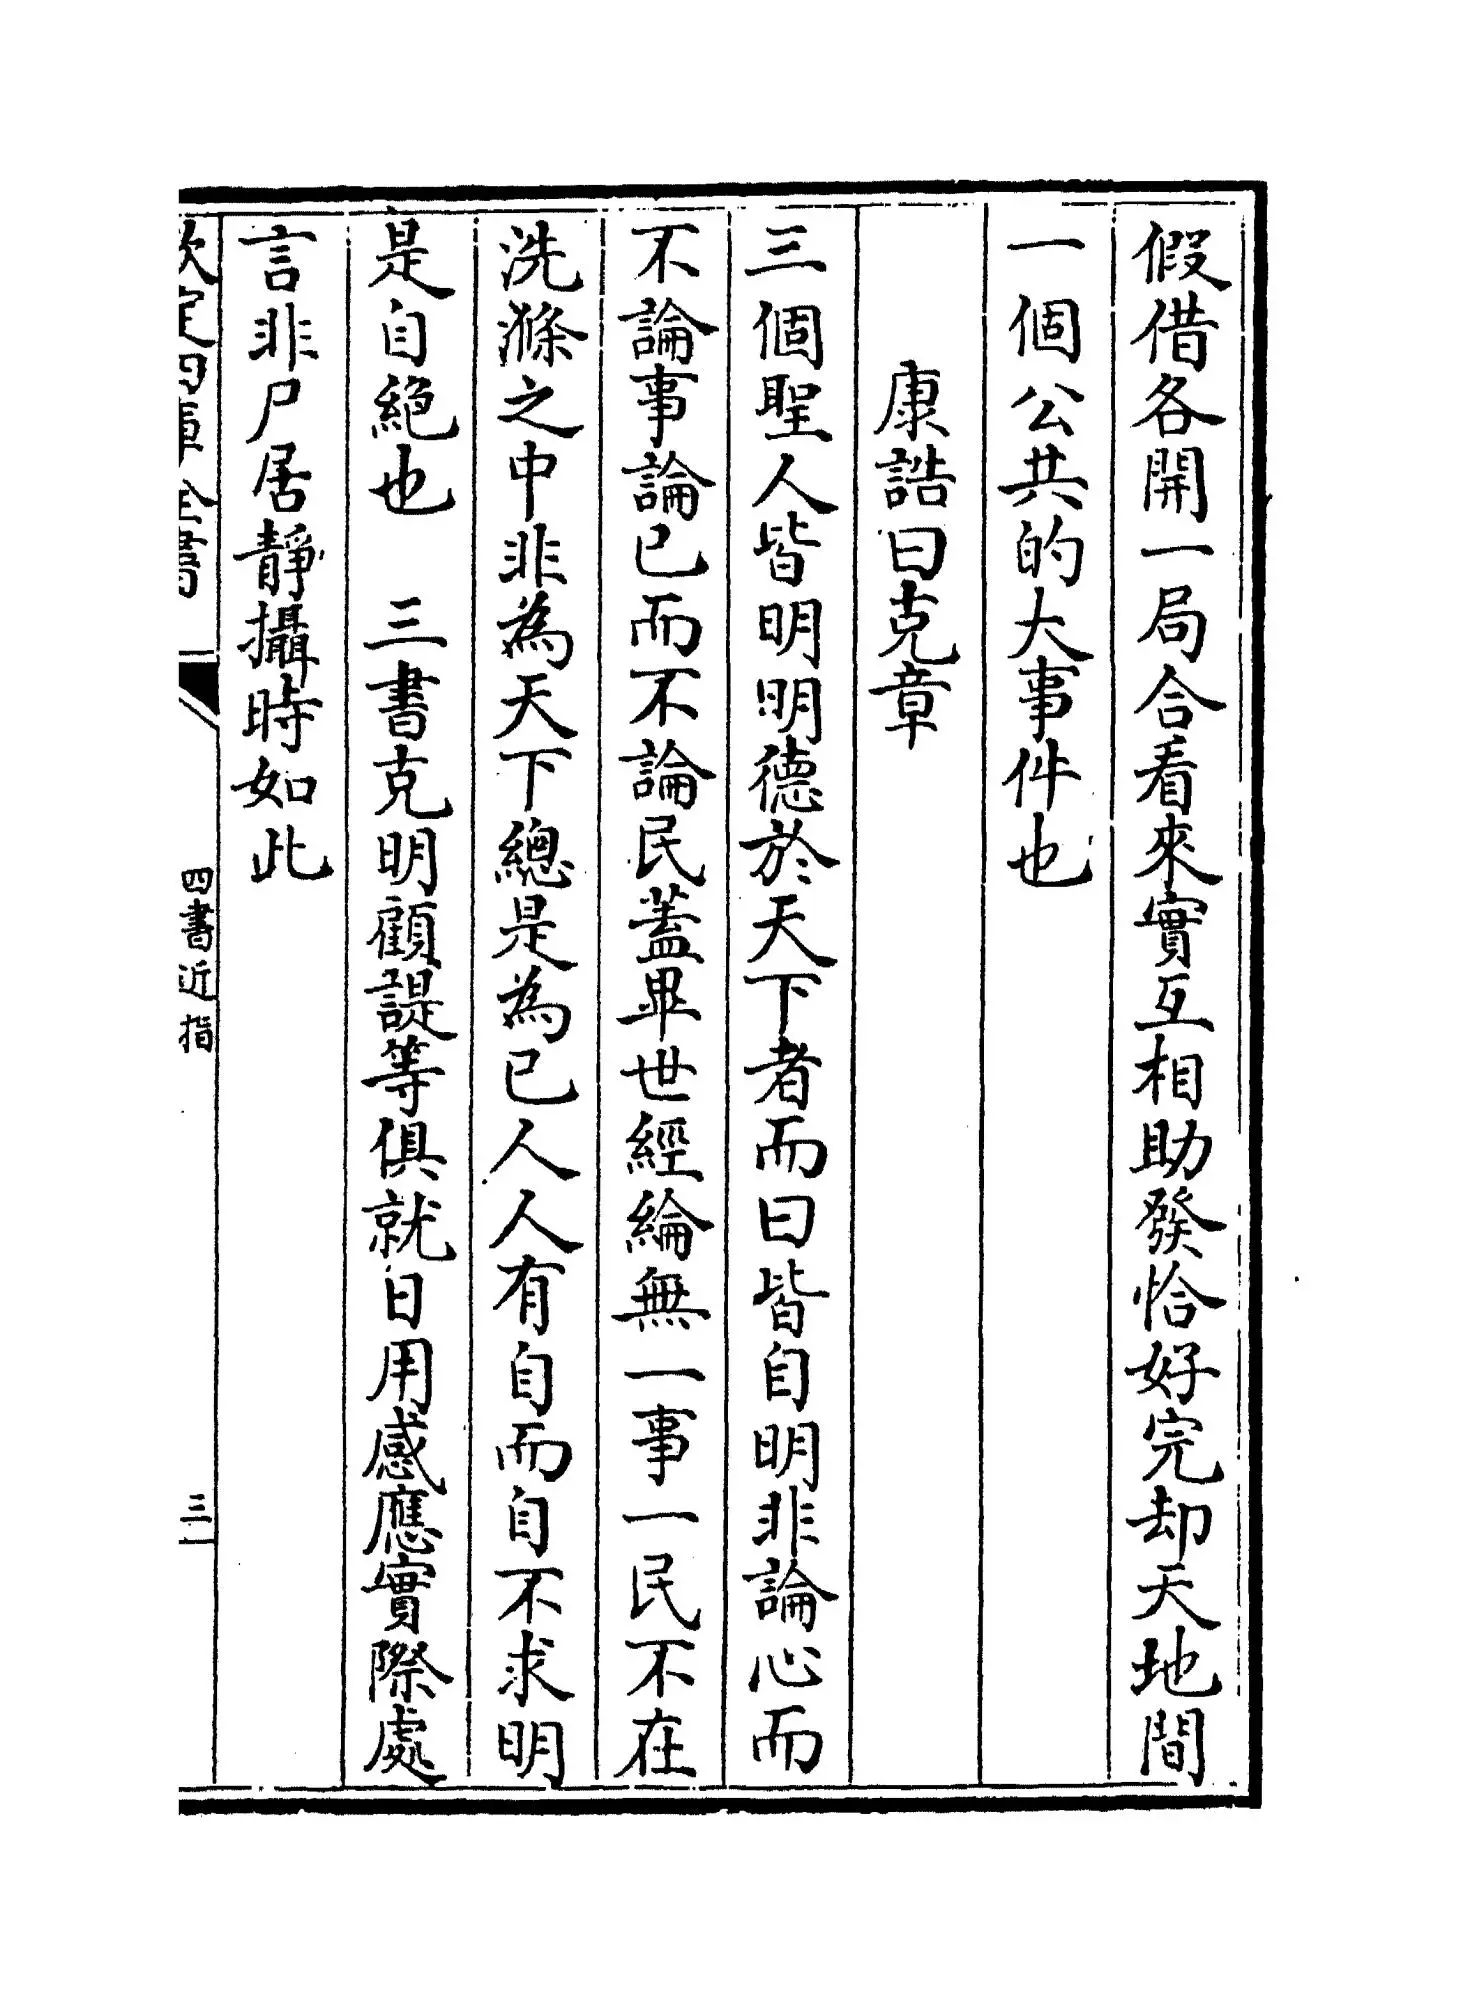 假借各開一局合看來實互相助發恰好完却天地間
一個公共的大事件也
康誥曰克章
三個聖人皆明明德於天下者而曰皆自明非論心而
不論事論已而不論民蓋畢世經綸無一事一民不在
洗滌之中非為天下總是為已人人有自而自不求明
是自絕也　三書克明顧諟等俱就日用感應實際處
言非尸居靜攝時如此
欽定四庫全書
四書近指
三